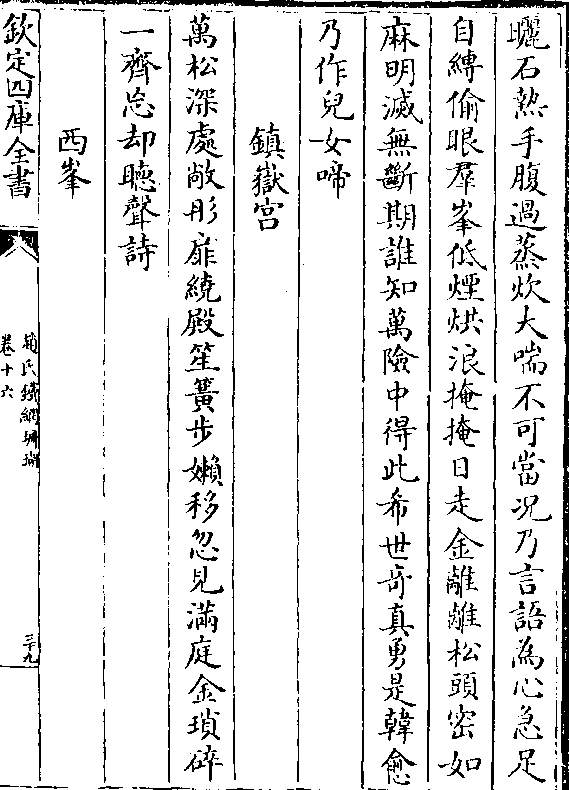 曬石熱手腹過蒸炊大喘不可當况乃言語為心急足
自縳偷眼羣峯低煙烘浪掩掩日走金離離松頭宻如
麻明滅無斷期誰知萬險中得此希世竒真勇是韓愈
乃作兒女啼
鎮嶽宫
萬松深處敞彤扉繞殿笙簧步嬾移忽見滿庭金瑣碎
一齊忘却聽聲詩
西峯
欽定四庫全書
趙氏鐵網珊瑚
卷十六
三十九